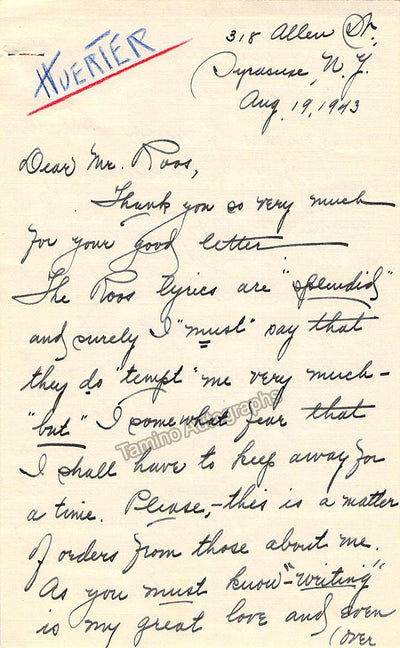 HUERTER
318 Allen St.,
Syracuse, N.Y.
Aug. 19, 1943
Dear Mr. Roos,
Thank you so very much
for your good letter
The Roos lyrics are "splendid"
and surely I "must" say that
they do "tempt" me very much -
"but" I somewhat fear that
Tamino Autographs
I shall have to keep away for
a time. Please, - this is a matter
of orders from those about me.
As you must know - "writing"
is my great love and even
(over